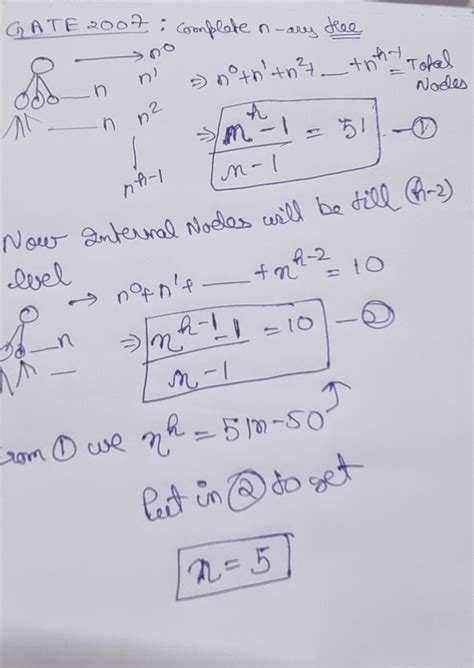 GATE 2007 : Complete n-ary tree
→ n⁰
n n¹
n n²
n^{h-1}
⇒ n⁰+n¹+n²+ __ +n^{h-1} = Total Nodes
⇒ \frac{n^h - 1}{n-1} = 51 — ①
Now Internal Nodes will be till (h-2)
level
→ n⁰+n¹+ ___ +n^{h-2} = 10
n
⇒ \frac{n^{h-1} - 1}{n-1} = 10 — ②
From ① we n^h = 51n-50
Put in ② to get
n = 5